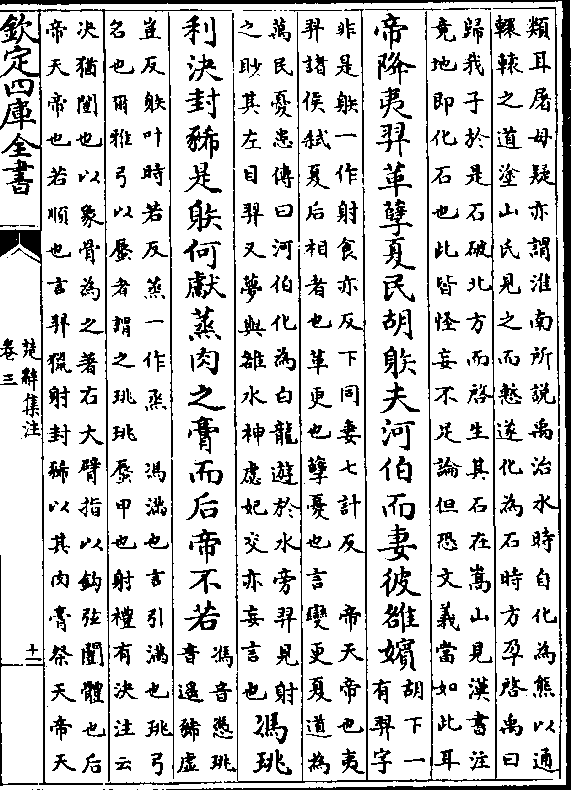 類耳屠母疑亦謂淮南所説禹治水時自化為熊以通
轘轅之道塗山氏見之而慙遂化為石時方孕啓禹曰
歸我子於是石破北方而啓生其石在嵩山見漢書注
竟地即化石也此皆怪妄不足論但恐文義當如此耳
帝降夷羿革孽夏民胡䠶夫河伯而妻彼雒嬪
胡下一
有羿字
非是䠶一作射食亦反下同妻七計反　帝天帝也夷
羿諸侯弑夏后相者也革更也孽憂也言變更夏道為
萬民憂患傳曰河伯化為白龍遊於水旁羿見射
之眇其左目羿又夢與雒水神虙妃交亦妄言也
馮珧
利決封豨是䠶何獻蒸肉之膏而后帝不若
馮音憑珧
音遥豨虚
豈反䠶叶時若反蒸一作烝　馮滿也言引滿也珧弓
名也爾雅弓以蜃者謂之珧珧蜃甲也射禮有決注云
决猶闓也以象骨為之著右大臂指以鈎弦闓體也后
帝天帝也若順也言羿獵射封豨以其肉膏祭天帝天
欽定四庫全書
楚辭集注
卷三
十一